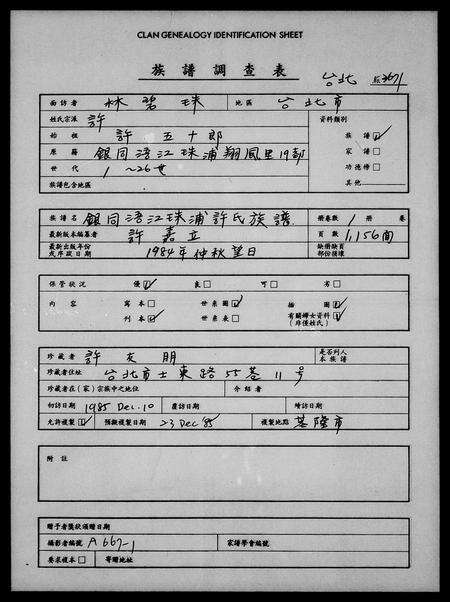 CLAN GENEALOGY IDENTIFICATION SHEET
族譜調查表
台北
面訪者 林碧珠 地區 台北市
姓氏宗派 許 資料類別
始祖 許五十郎 族譜☑
原籍 銀同浯江珠浦翔風里19都 家譜□
世代 1~26世 功德榜□
族譜包含地區 其他
族譜名 銀同浯江珠浦許氏族譜 冊卷數 1 冊 卷
最新版本編纂者 許嘉立 頁數 1,156面
最新出版年份或序跋日期 1984年仲秋望日 缺冊缺頁部份損壞
保管狀況 優☑ 良□ 可□ 劣□
內容 寫本□ 世系圖☑ 插圖☑
刊本☑ 世系表□ 有關婦女資料☑
(非僅姓氏)
珍藏者 許友朋 是否列入本族譜
珍藏者住址 台北市士東路55巷11号
珍藏者在(家)宗族中之地位 介紹者
初訪日期 1985 Dec. 10 覆訪日期 續訪日期
允許複製☑ 預擬複製日期 23 Dec 85 複製地點 基隆市
附註
贈予者獎狀頒贈日期
攝影者編號 A667-1 家譜學會編號
要求複本□ 寄贈地址